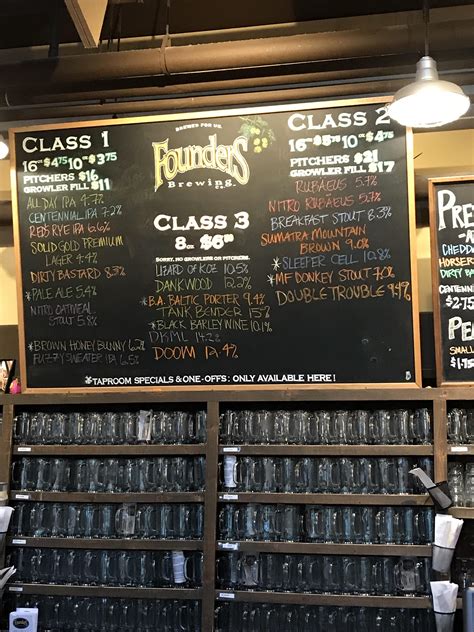 CLASS 1
16oz $4.75 10oz $3.75
PITCHERS $16
GROWLER FILL $11
ALL DAY IPA 4.7%
CENTENNIAL IPA 7.2%
RED'S RYE IPA 6.6%
SOLID GOLD PREMIUM
LAGER 4.4%
DIRTY BASTARD 8.5%
*PALE ALE 5.4%
NITRO OATMEAL
STOUT 5.8%
*BROWN HONEY BUNNY 6.2%
FUZZY SWEATER IPA 6.5%
BREWED FOR US.
FOUNDERS
BREWING.
CLASS 3
8oz $6.00
SORRY, NO GROWLERS OR PITCHERS.
LIZARD OF KOZ 10.5%
DANKWOOD 12.2%
*B.A. BALTIC PORTER 9.4%
TANK BENDER 15%
*BLACK BARLEY WINE 10.1%
DKML 14.2%
DOOM 12.4%
CLASS 2
16oz $5.75 10oz $4.75
PITCHERS $21
GROWLER FILL $17
RUBAEUS 5.7%
NITRO RUBAEUS 5.7%
BREAKFAST STOUT 8.3%
SUMATRA MOUNTAIN
BROWN 9.0%
*SLEEPER CELL 10.8%
*MF DONKEY STOUT 7.0%
DOUBLE TROUBLE 9.4%
*TAPROOM SPECIALS & ONE-OFFS: ONLY AVAILABLE HERE!
PRE
CHEDD
HORSER
DIRTY B
CENTEN